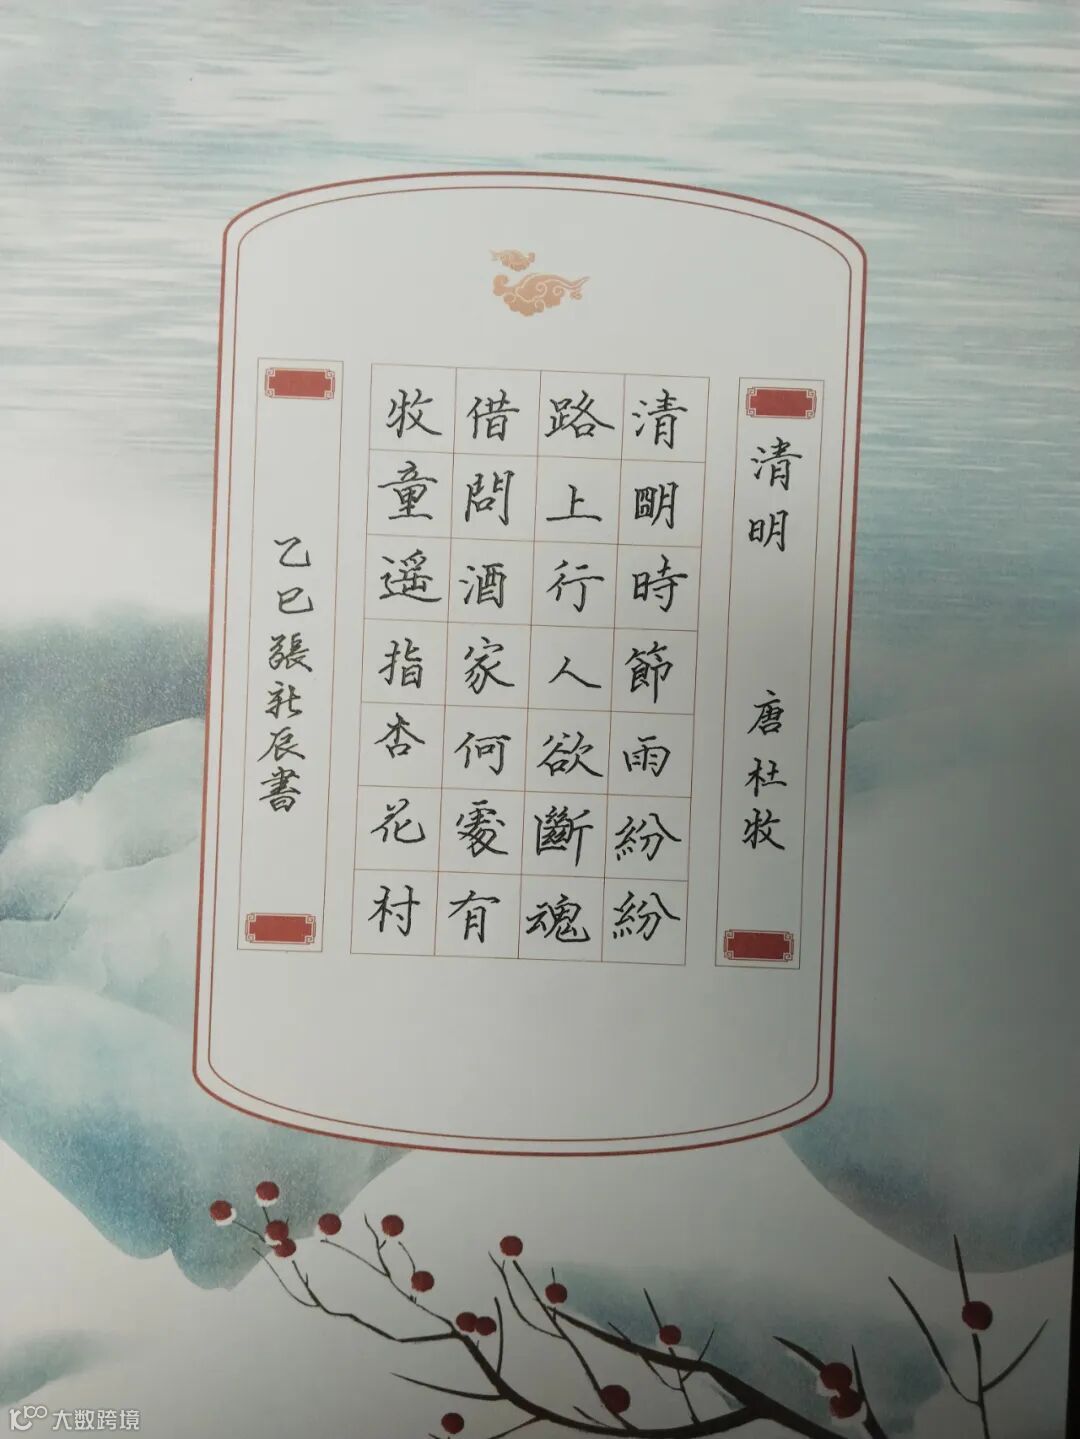 清明 唐杜牧
清明時節雨紛紛
路上行人欲斷魂
借問酒家何處有
牧童遥指杏花村
乙巳張新辰書
大数跨境